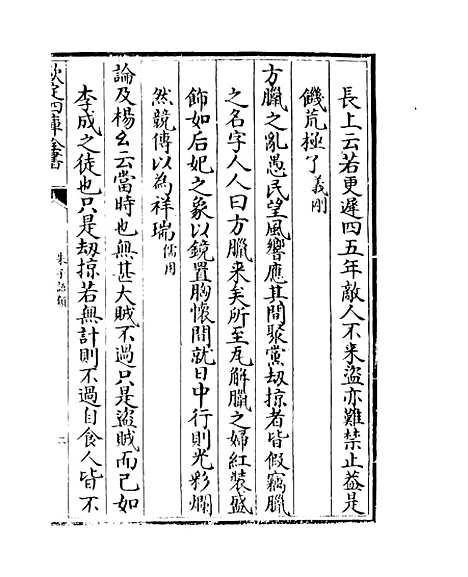 長上云若更遲四五年敵人不来盜亦難禁止蓋是
饑荒極了義剛
方臘之亂愚民望風響應其間聚黨刼掠者皆假竊臘
之名字人人曰方臘来矣所至瓦解臘之婦紅裝盛
飾如后妃之象以鏡置胸懷間就日中行則光彩爛
然競傳以為祥瑞儒用
論及楊幺云當時也無甚大賊不過只是盜賊而已如
李成之徒也只是刼掠若無計則不過自食人皆不
欽定四庫全書
朱子語類
二